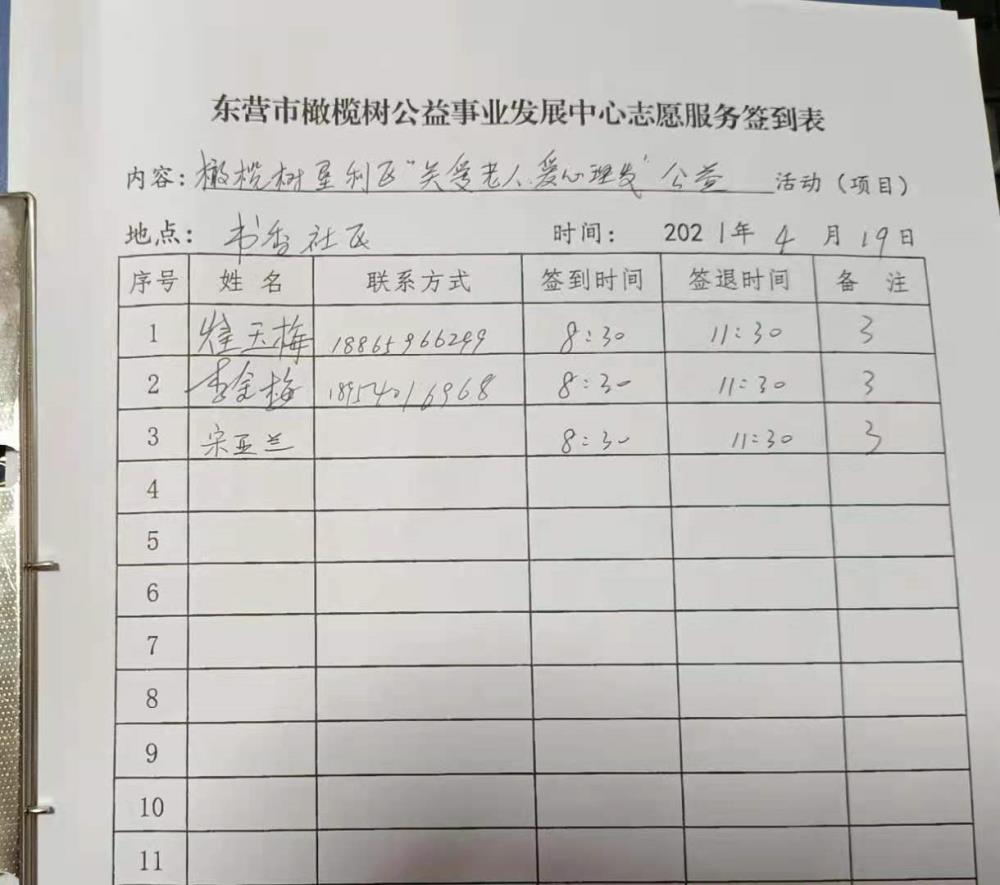 东营市橄榄树公益事业发展中心志愿服务签到表
内容：橄榄树垦利区"关爱老人.爱心理发"公益 活动（项目）
地点： 书香社区 时间： 2021年 4 月 19日
序号 姓名 联系方式 签到时间 签退时间 备注
1 玉梅 18865966299 8:30 11:30 3
2 李金梅 18954016968 8:30 11:30 3
3 宋亚兰 8:30 11:30 3
4
5
6
7
8
9
10
11